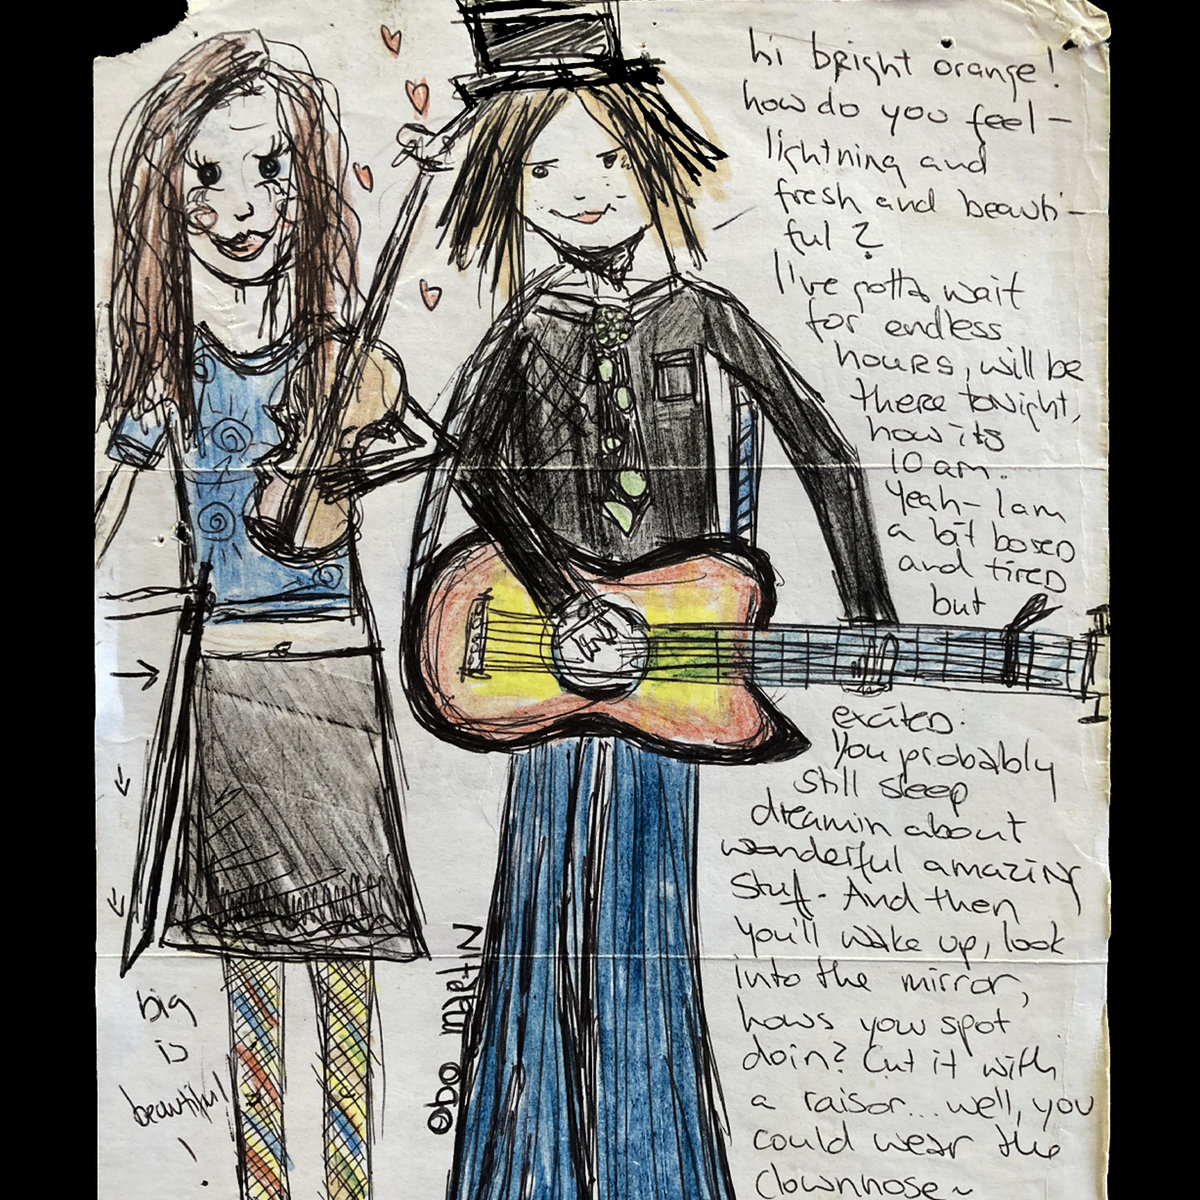 hi bright orange!
how do you feel –
lightning and
fresh and beauti-
ful?
I've gotta wait
for endless
hours, will be
there tonight,
now its
10 am.
Yeah – I am
a bit bored
and tired
but
excited.
You probably
still sleep
dreamin about
wonderful amazing
stuff. And then
you'll wake up, look
into the mirror,
hows your spot
doin? Cut it with
a raisor... well, you
could wear the
clownnose ~
big
is
beautiful!
!
Obo Martin